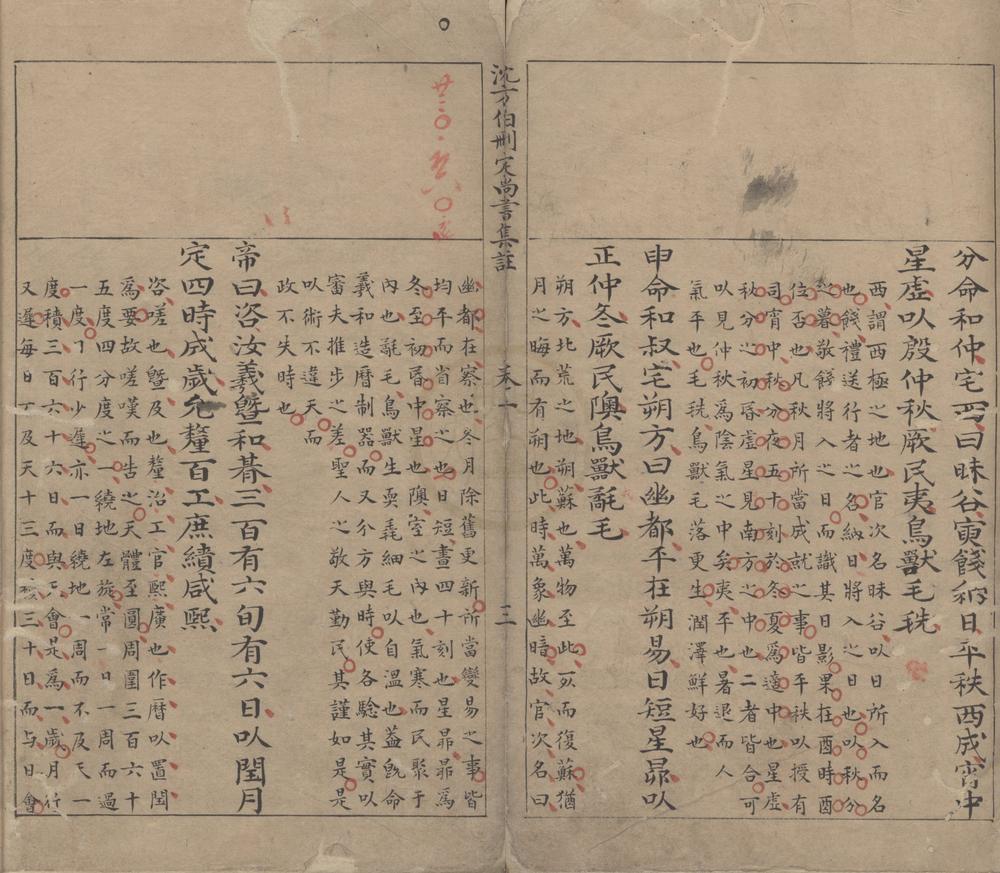 分命和仲宅西曰昧谷寅餞納日平秩西成宵中
星虛以殷仲秋厥民夷鳥獸毛毨
西謂西極之地也官次名昧谷以日所入而名
也餞禮送行者之名納日將入之日也以秋分
之暮敬餞將入之日而識其日影果在酉時酉
位否也凡秋月所當成就之事皆平秩以授有
司宵中秋分夜五十刻於冬夏爲適中也星虛
秋分之初昏虛星見南方之中也二者皆合可
以見仲秋爲陰氣之中矣夷平也暑退而人
氣平也毛毨鳥獸毛落更生潤澤鮮好也
申命和叔宅朔方曰幽都平在朔易日短星昴以
正仲冬厥民隩鳥獸氄毛
朔方北荒之地朔蘇也萬物至此死而復蘇猶
月之晦而有朔也此時萬象幽暗故官次名曰
沈方伯刪定尚書集註
卷一
三
幽都在察也冬月除舊更新所當變易之事皆
均平而省察之也日短晝四十刻也星昴昴爲
冬至初昏中星也隩室之內也氣寒而民聚于
內也氄毛鳥獸生耎毳細毛以自溫也蓋旣命
羲和造曆制器而又分方與時使各驗其實以
審夫推步之差聖人之敬天勤民其謹如是是
以術不違天而
政不失時也
帝曰咨汝羲曁和朞三百有六旬有六日以閏月
定四時成歲允釐百工庶績咸熙
咨嗟也曁及也釐治工官熙廣也作曆以置閏
爲要故嗟嘆而告之天體至圓周圍三百六十
五度四分度之一繞地左旋常一日一周而過
一度日行少遲亦一日繞地一周而不及天一
度積三百六十六日而與天會是爲一歲月行
又遲每日不及天十三度 三十日而与日會